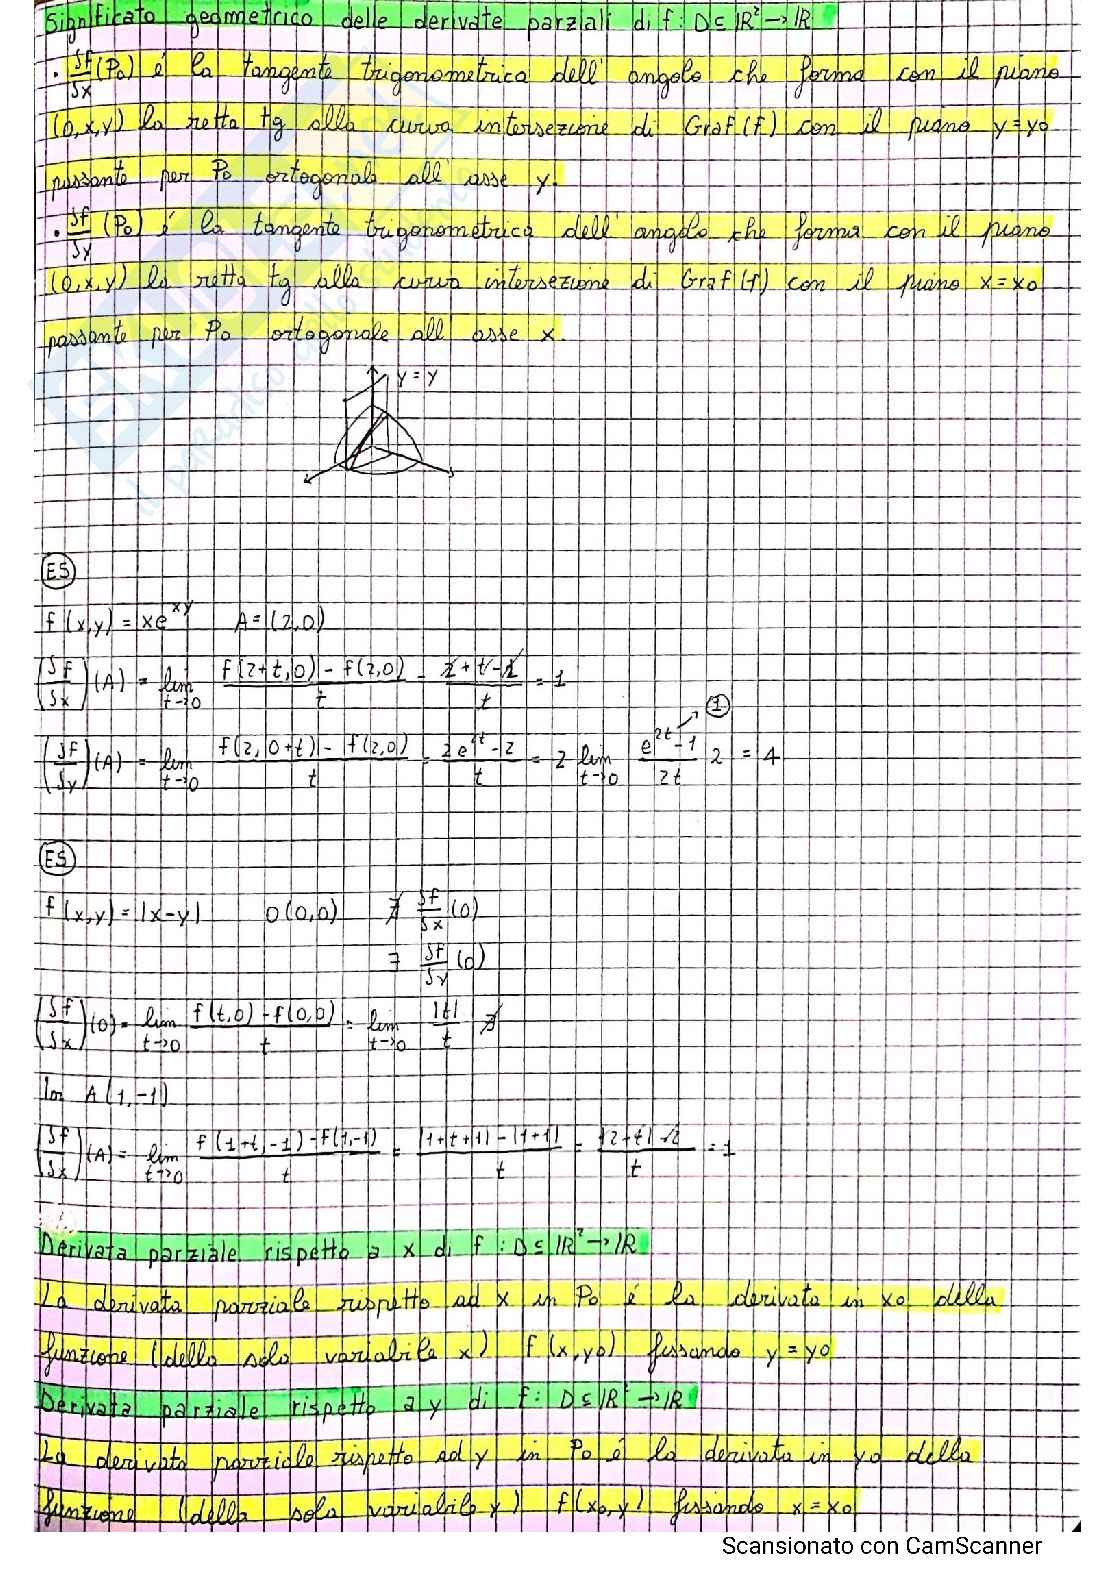 Significato geometrico delle derivate parziali di f: D⊆ℝ²→ℝ
• δf/δx (P₀) é la tangente trigonometrica dell' angolo che forma con il piano
(0,x,y) la retta tg alla curva intersezione di Graf(f) con il piano y=y₀
passante per P₀ ortogonale all' asse y.
• δf/δy (P₀) é la tangente trigonometrica dell' angolo che forma con il piano
(0,x,y) la retta tg alla curva intersezione di Graf(f) con il piano x=x₀
passante per P₀ ortogonale all' asse x.
y=y
ES
f(x,y)=xe^xy A=(2,0)
(δf/δx)(A) = lim t→0 f(2+t,0)-f(2,0)/t = 2+t-2/t = 1
(δf/δy)(A) = lim t→0 f(2,0+t)-f(2,0)/t = 2e^2t-2/t = 2 lim t→0 e^2t-1/2t 2 = 4
1
ES
f(x,y)=|x-y| 0(0,0) ∄ δf/δx (0)
∄ δf/δy (0)
(δf/δx)(0)= lim t→0 f(t,0)-f(0,0)/t = lim t→0 |t|/t ∄
A(1,-1)
(δf/δx)(A)= lim t→0 f(1+t,-1)-f(1,-1)/t = |1+t+1|-|1+1|/t = |2+t|-2/t = 1
Derivata parziale rispetto a x di f: D⊆ℝ²→ℝ
La derivata parziale rispetto ad x in P₀ é la derivata in x₀ della
funzione (della sola variabile x) f(x,y₀) fissando y=y₀
Derivata parziale rispetto a y di f: D⊆ℝ²→ℝ
La derivata parziale rispetto ad y in P₀ é la derivata in y₀ della
funzione (della sola variabile y) f(x₀,y) fissando x=x₀
Scansionato con CamScanner